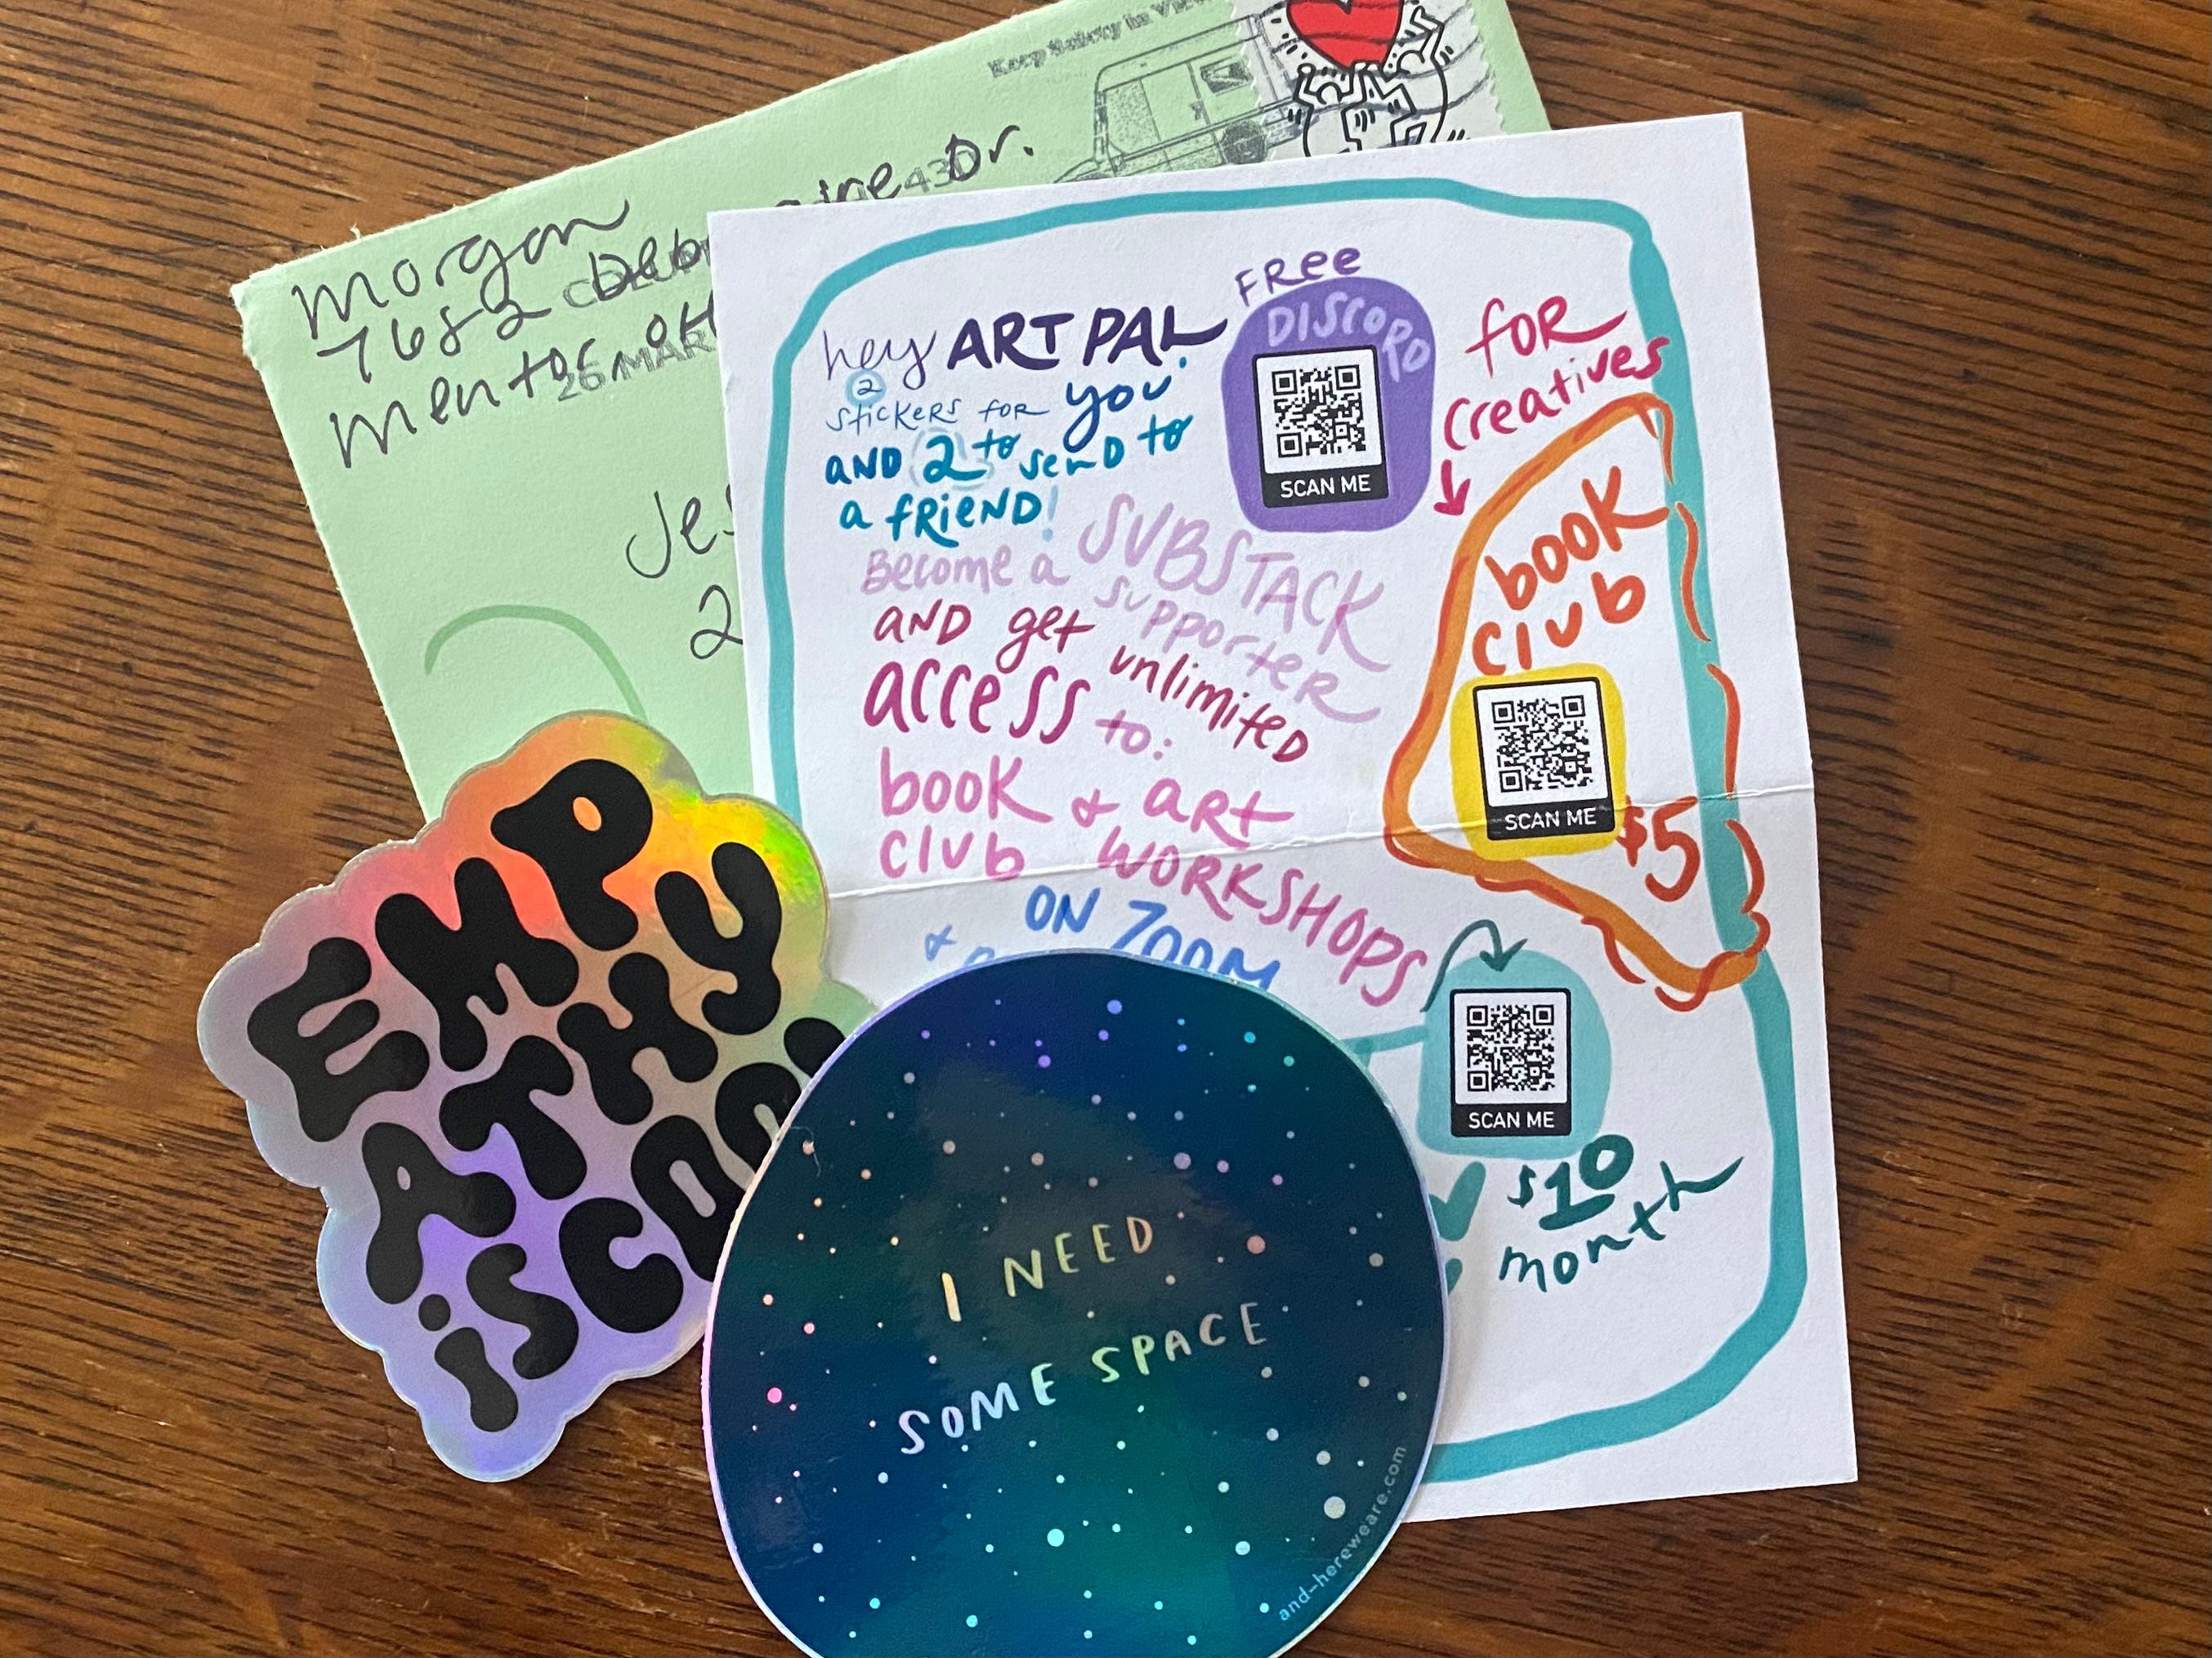 Keep Safety in
morgan
7682
Dr.
mentor, oH
26 MAR
2
hey ART PAL
2
stickers for you
AND 2 to send to
a friend!
Become a SUBSTACK
supporter
AND get unlimited
access to:
book & art
club WORKSHOPS
ON ZOOM
&
FRee
DISCORD
SCAN ME
for
creatives
book
club
SCAN ME
$5
SCAN ME
$10
month
EMP
ATHY
iS COO
I NEED
SOME SPACE
and-hereweare.com